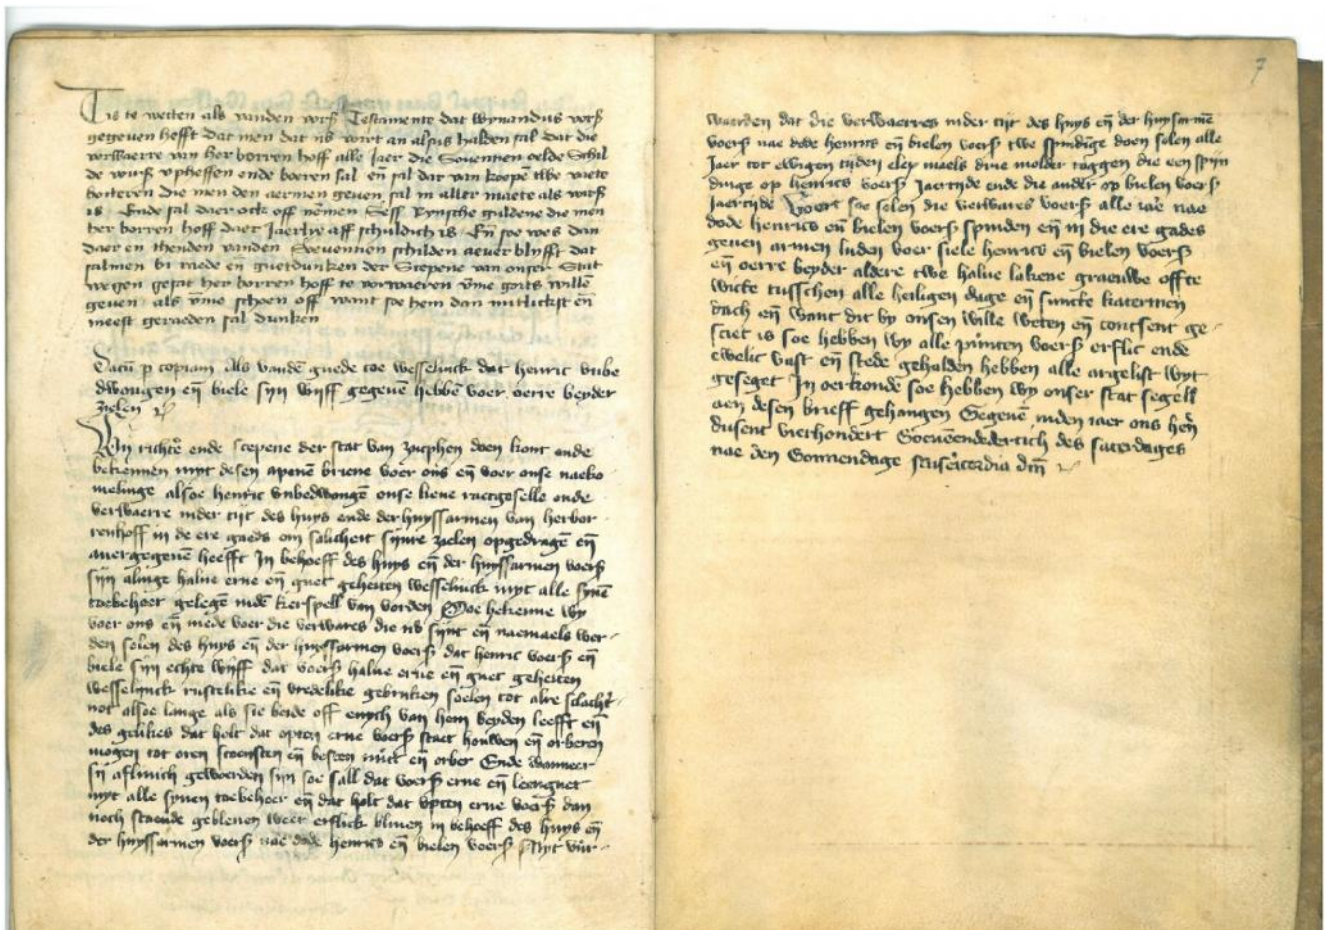 Tis te weten als vanden vorß Testamente dat wynandus vorß
gegeven hefft dat men dat nv vort an aldus halden sal dat die
verwaerre van her borren hoff alle Jaer die Soventien oelde Schil
de vorß vpheffen ende boeren sal eñ sal dar van koepē twe vaete
boiteren die men den aermen geuen sal in aller maete als vorß
is Ende sal daer ock off nēmen Sess Rynsche guldene die men
her borren hoff daer Jaerlix aff schuldich is Eñ soe wes dan
daer en thenden vanden Soeuentien schilden aeuer blyfft dat
salmen bi raede eñ guetdunken der Scepene van onser Stat
wegen gesat her borren hoff te vorwaeren vme goits willē
geuen als vme schoen off want soe hem dan nutlickst eñ
meest geraeden sal dunken
Datū p copiam Als vandē guede toe wesselinck dat henric vnbe
dwongen eñ biele syn wyff gegeuē hebbē voer oerre beyder
zielen
Wy richt͛e ende scepene der stat van zutphen doen kont ende
bekennen myt desen apenē brieue voer ons eñ voer onse naeko
melinge alsoe henric vnbedwongē onse lieue raetgeselle ende
verwaerre inder tijt des huys ende der huyssarmen van herbor
renhoff in de ere gaeds om salicheit synre zielen opgedragē eñ
auergegeuē heefft In behoeff des huys eñ der huyssarmen voerß
sijn alinge halue erue eñ guet geheiten wesselinck myt alle synē
toebehoer gelegē indē kerspell van vorden Soe bekenne wy
voer ons eñ mede voer die verwares die nv synt eñ naemaels wer-
den solen des huys eñ der huyssarmen voerß dat henric voerß eñ
biele syn echte wyff dat voerß halue erue eñ guet geheiten
wesselynck rustelike eñ vredelike gebruken soelen tot alre slacht-
not alsoe lange als sie beide off enych van hem beyden leefft eñ
des gelikes dat holt dat opten erue voerß staet houwen eñ orberen
mogen tot oren scoensten eñ besten nut eñ orber Ende wanneer
sy afliuich gewoerden sijn soe sall dat voerß erue eñ leenguet
myt alle synen toebehoer eñ dat holt dat vpten erue voerß dan
noch staende gebleuen weer erflick bliuen in behoeff des huys eñ
der huyssarmen voerß nae dode henrics eñ bielen voerß Myt vur-
7
waerden dat die verwaerres inder tijt des huys eñ der huysarmē
voerß nae dode henrics eñ bielen voerß twe spindige doen solen alle
Jaer tot ewigen tijden elcx maels drie molder roggen die een spin
dinge op henrics voerß Jaertijde ende die ander op bielen voerß
Jaertijde Voert soe solen die verwares voerß alle iaer nae
dode henrics eñ bielen voerß spinden eñ in die ere gades
geuen armen luden voer siele henrics eñ bielen voerß
eñ oerre beyder aldere twe halue lakene graeuwe offte
witte tusschen alle heiligen dage eñ suncte katerinen
dach eñ want dit by onsen wille weten eñ consent ge-
sciet is soe hebben wy alle pūnten voerß erflic ende
ewelic vast eñ stede gehalden hebben alle argelist wyt
geseget In oerkonde soe hebben wy onser stat segell
aen desen brieff gehangen Gegeuē inden iaer ons heñ
dusent vierhondert Soeuenendedertich des saterdages
nae den Sonnendage misericordia dm̄